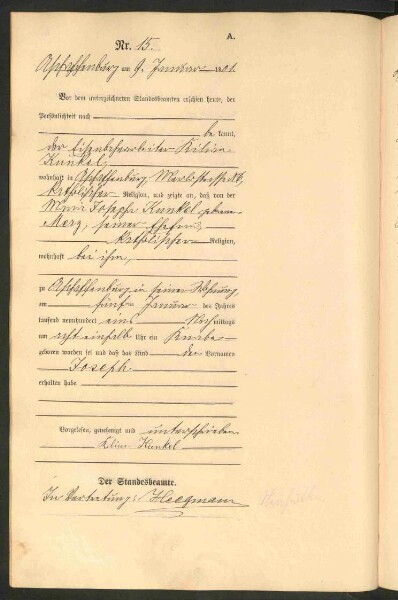 A.
Nr. 15.
Aschaffenburg am 9. Januar 1901.
Vor dem unterzeichneten Standesbeamten erschien heute, der
Persönlichkeit nach
be kannt,
der Eisenbahnarbeiter Kilian
Kunkel,
wohnhaft in Aschaffenburg,
katholischer Religion, und zeigte an, daß von der
Kunkel geborene
Merz, seiner Ehefrau,
katholischer Religion,
wohnhaft bei ihm,
zu Aschaffenburg in seiner Wohnung,
am fünften Januar des Jahres
tausend neunhundert eins Nachmittags
um acht einhalb Uhr ein Knabe
geboren worden sei und daß das Kind den Vornamen
Joseph
erhalten habe
Vorgelesen, genehmigt und unterschrieben
Kilian Kunkel
Der Standesbeamte.
In Vertretung: Heegmann